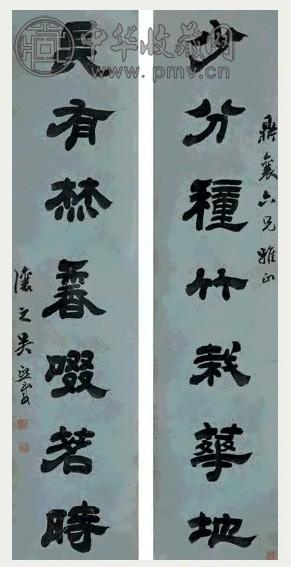 中华收藏网
www.pmv.cn
鼎襄六兄雅正
少分種竹栽華地
長有焚香啜茗時
讓之吳熙載